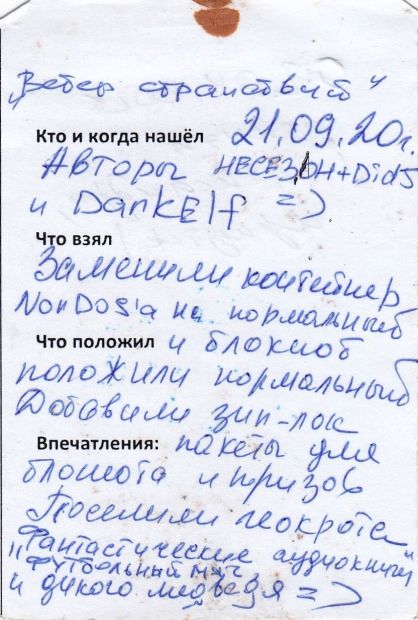 "Ветер странствий"
Кто и когда нашёл 21.09.20г.
Авторы НЕСЕЗОН+DidS
и DankElf =)
Что взял
Заменили контейнер
NonDos'а на нормальный
Что положил и блокнот
положили нормальный
Добавили зип-лок
Впечатления: пакеты для
блокнота и призов
Поселили геокрота
"Фантастические аудиокниги"
футбольный мяч
и дикого медведя =)